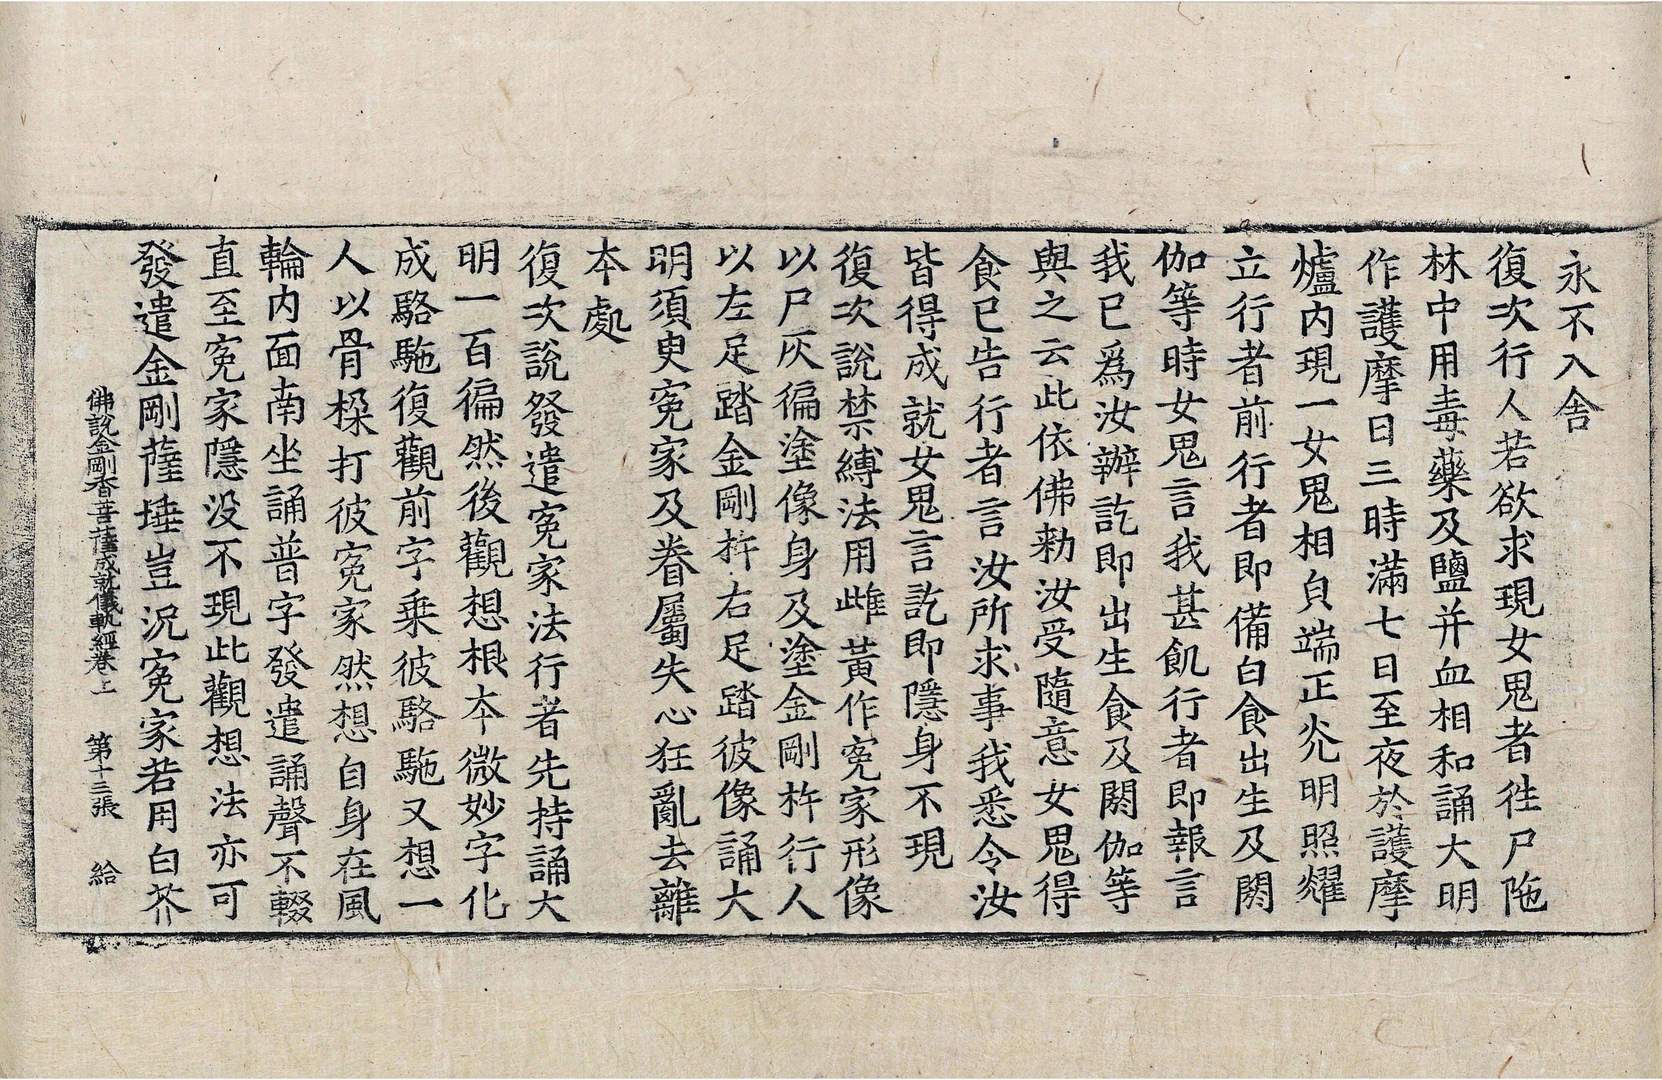 永不入舍
復次行人若欲求現女鬼者往尸陁
林中用毒藥及鹽并血相和誦大明
作護摩日三時滿七日至夜於護摩
爐內現一女鬼相皃端正光明照耀
立行者前行者即備白食出生及閼
伽等時女鬼言我甚飢行者即報言
我已為汝辦訖即出生食及閼伽等
與之云此依佛勑汝受隨意女鬼得
食已告行者言汝所求事我悉令汝
皆得成就女鬼言訖即隱身不現
復次說禁縛法用雌黃作寃家形像
以尸灰徧塗像身及塗金剛杵行人
以左足踏金剛杵右足踏彼像誦大
明須臾寃家及眷屬失心狂亂去離
本處
復次說發遣寃家法行者先持誦大
明一百徧然後觀想根本微妙字化
成駱駞復觀前字乗彼駱駞又想一
人以骨槕打彼寃家然想自身在風
輪內面南坐誦普字發遣誦聲不輟
直至寃家隱没不現此觀想法亦可
發遣金剛薩埵豈況寃家若用白芥
佛說金剛香菩薩成就儀軌經卷上 第十三張 給